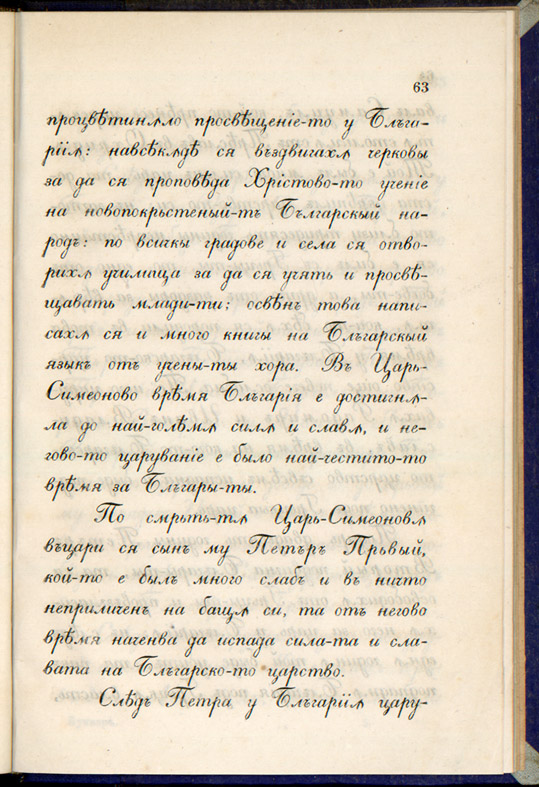 63
процвѣтинѫло просвѣщеніе-то у Бълга-
ріѭ: навсѣкѫдѣ ся въздвигахѫ черковы
за да ся проповѣда Хрістово-то ученіе
на новопокръстеный-тъ Бългaрскый на-
родъ: по всичкы градове и села ся отво-
рихѫ училища за да ся учять и просвѣ-
щавать млади-ти: освѣнъ това напи-
сахѫ ся и много книгы на Бългaрскый
языкъ отъ учены-ты хора. Въ Царь-
Симеоново врѣмя Бългaрія е достигнѫ-
ла до най-голѣмѫ силѫ и славѫ, и не-
гово-то царуваніе е было най-честито-то
врѣмя за Бългaры-ты.
По смръть-тѫ Царь-Симеоновѫ
въцари ся сынъ му Петъръ Пръвый,
кой-то е былъ много слабъ и въ ничто
неприличенъ на бащѫ си, та отъ негово
врѣмя наченва да испада сила-та и сла-
вата на Бългaрско-то царство.
Слѣдъ Петра у Бългaріѭ цару-